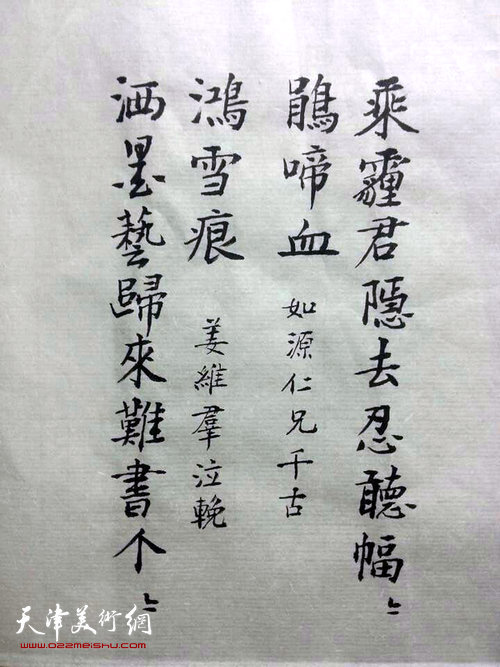 乘霾君隱去忍聽幅〻
鵑啼血
如源仁兄千古
鴻雪痕
姜維群泣輓
洒墨藝歸來難書个〻
天津美術網
www.022meishu.com